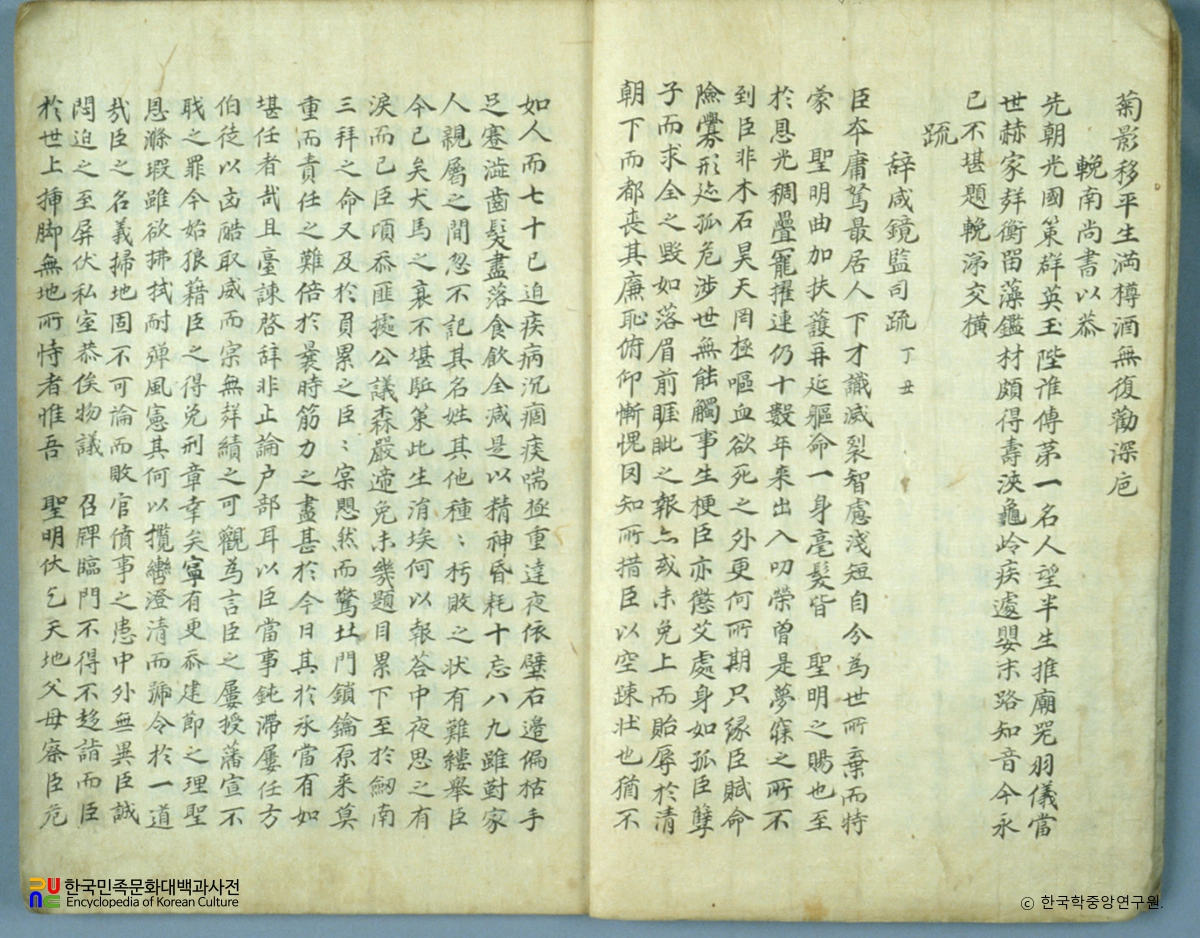 菊影移平生満樽酒無復勸深卮
輓南尚書以恭
先朝光國策群英玉陛誰傳苐一名人望半生推廟咒羽儀當
世赫家群衡留藻鑑材頗得壽浹龜岭疾遽嬰末路知音今永
已不堪題輓涕交横
疏
辞咸鏡監司疏 丁丑
臣夲庸駑最居人下才識滅裂智慮淺短自分為世所棄而特
蒙 聖明曲加扶護再延軀命一身毫髮皆 聖明之賜也至
於恩光稠疊寵擢連仍十數年来出入叨榮曽是夢寐之所不
到臣非木石昊天罔極嘔血欲死之外更何所期只縁臣賦命
險釁形迹孤危涉世無能觸事生梗臣亦懲艾處身如孤臣孽
子而求全之毀如落眉前睚眦之報亦或未免上而貽辱於清
朝下而都喪其廉恥俯仰慚愧罔知所措臣以空踈壯也猶不
如人而七十已迫疾病沉痼痰喘極重達夜依壁右邉偏枯手
足蹇澁齒髮盡落食飲全減是以精神昏耗十忘八九雖對家
人親屬之間忽不記其名姓其他種〻朽敗之状有難縷舉臣
今已矣犬馬之衰不堪駈策此生涓埃何以報答中夜思之有
淚而已臣頃忝匪據公議森嚴遆免未幾題目累下至於嶺南
三拜之命又及於負累之臣〻宲愳然而驚北門鎖鑰原来莫
重而責任之難倍於曩時筋力之盡甚於今日其於永當有如
堪任者哉且臺諫啓辞非止論户部耳以臣當事鈍滯屢任方
伯徒以凶酷取威而宲無群績之可觀為言臣之屢授藩宣不
戝之罪今始狼籍臣之得免刑章幸矣寧有更忝建節之理聖
恩滌瑕雖欲拂拭耐彈風憲其何以攬轡澄清而號令於一道
㢤臣之名義掃地固不可論而敗官僨事之患中外無異臣誠
悶迫之至屏伏私室恭俟物議 召牌臨門不得不趍詣而臣
於世上揷脚無地所恃者惟吾 聖明伏乞天地父母察臣危
한국민족문화대백과사전
Encyclopedia of Korean Culture
ⓒ 한국학중앙연구원.